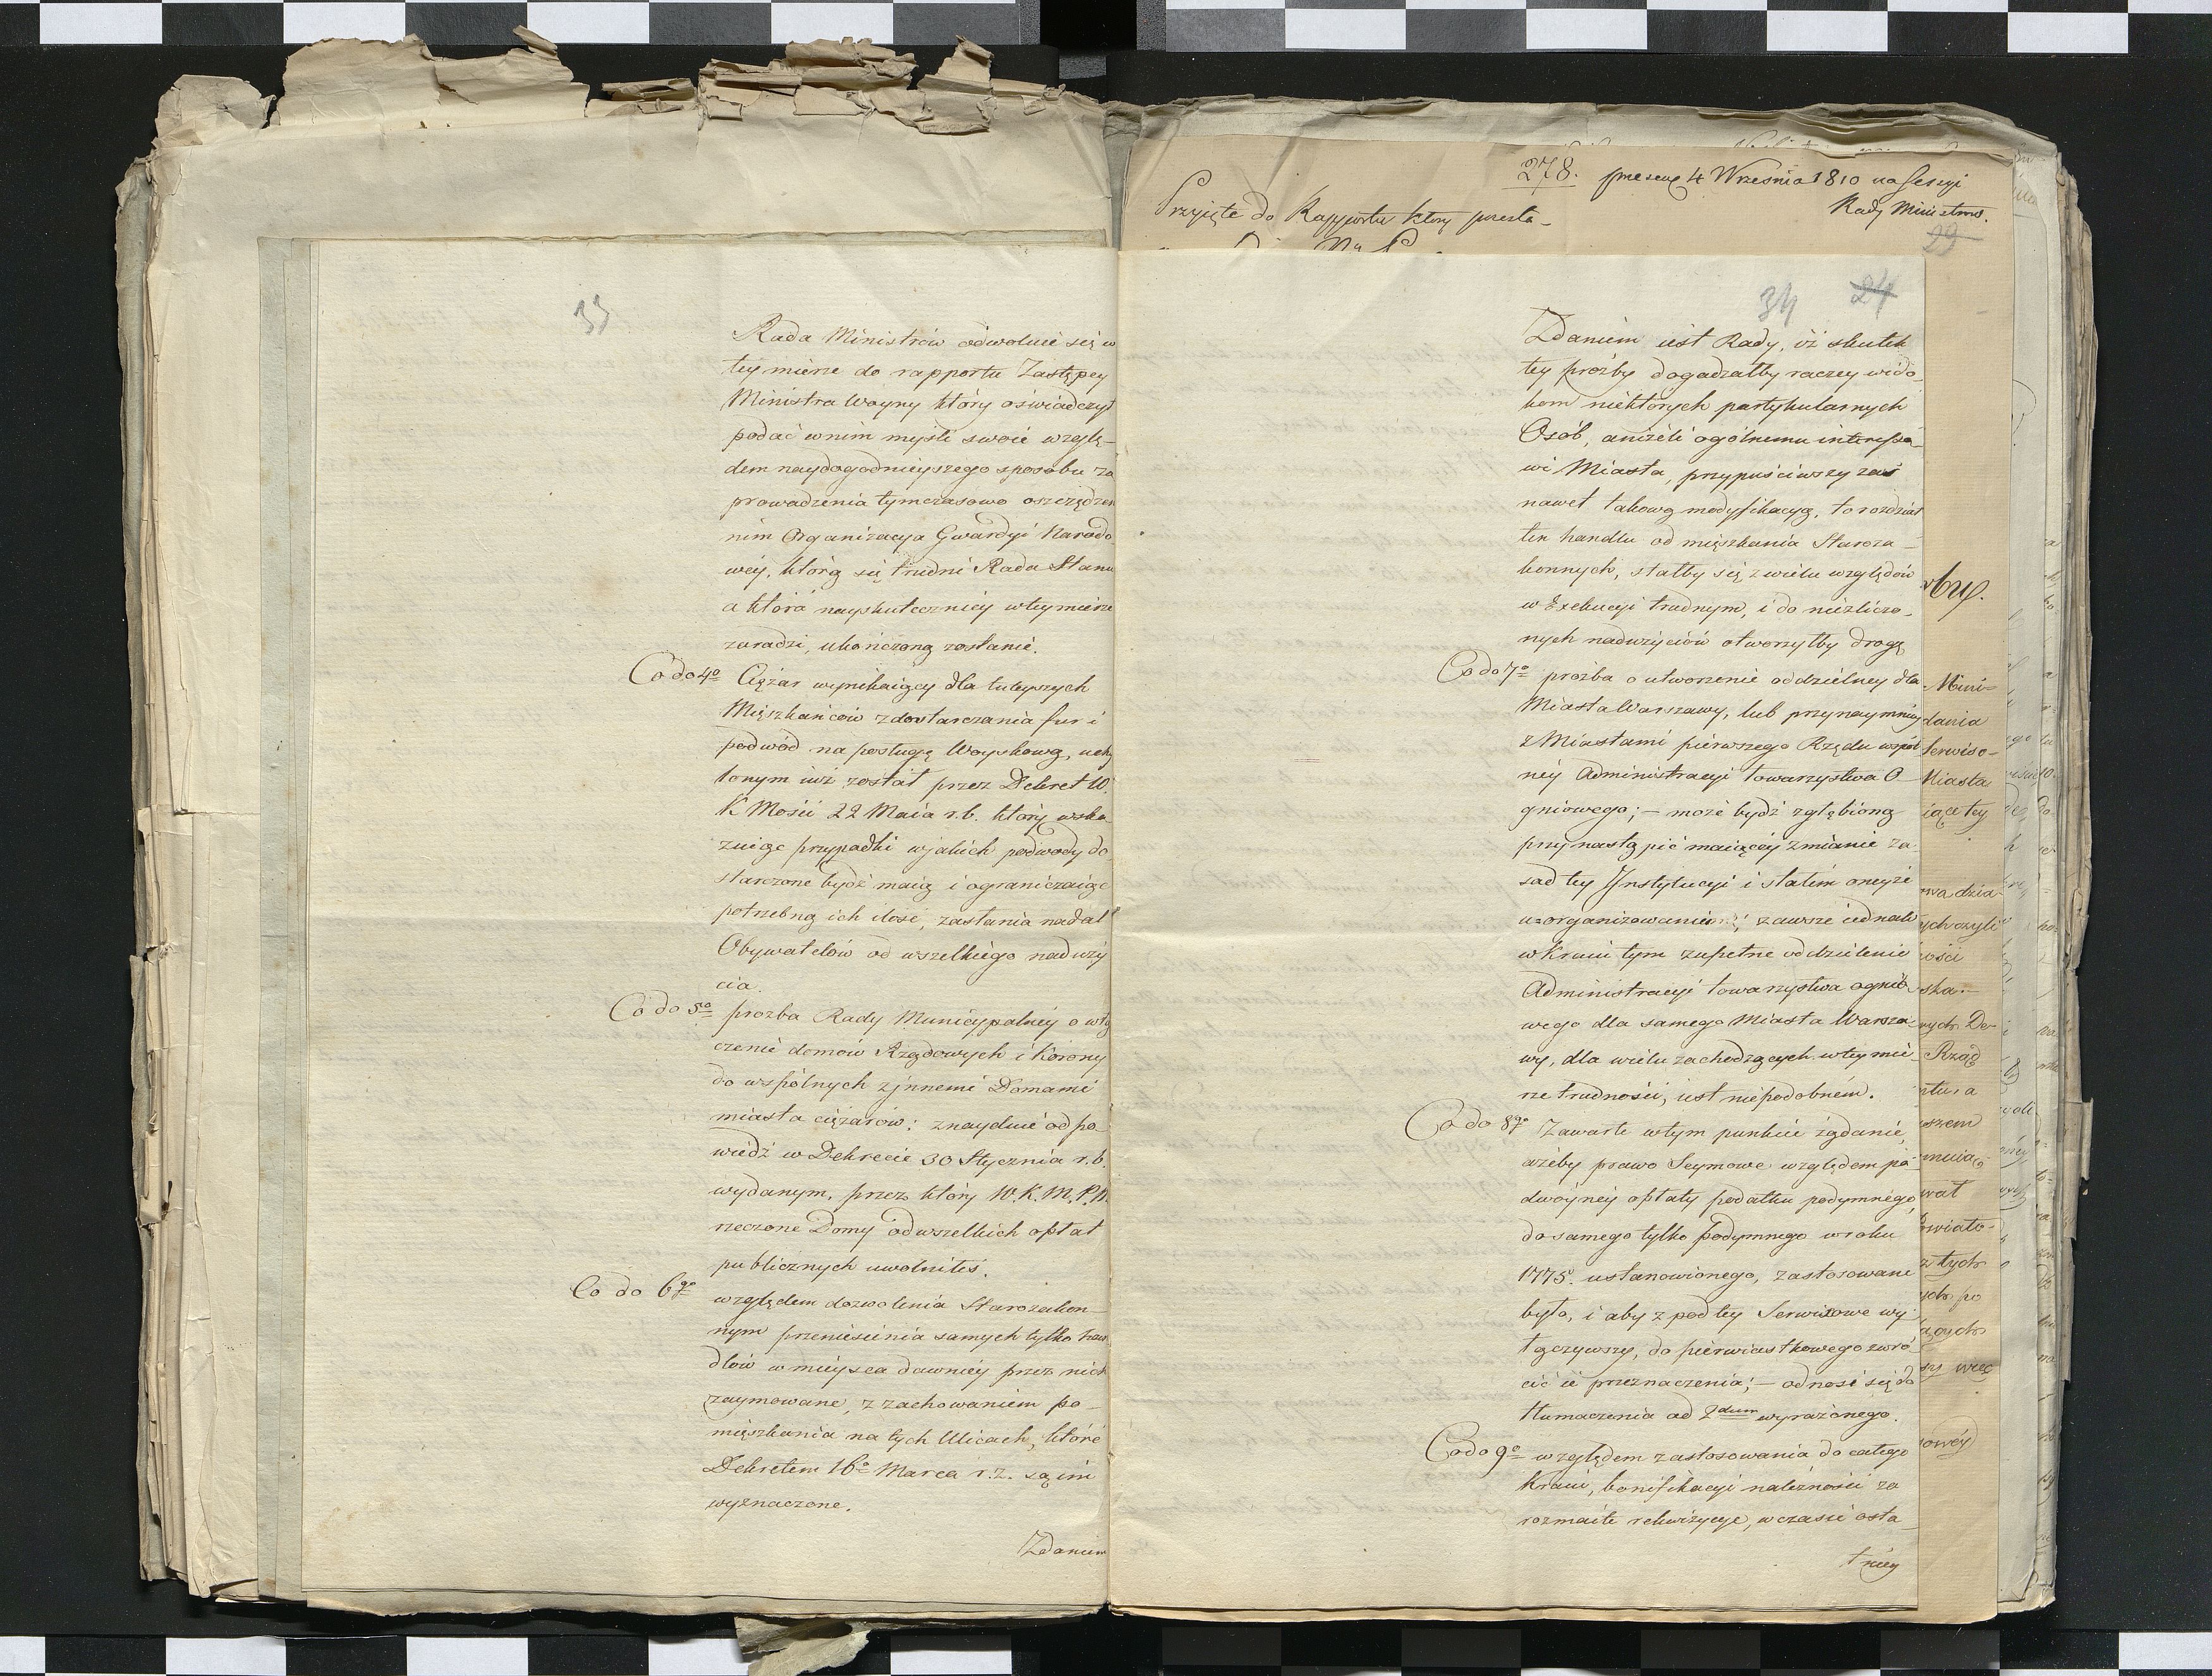 33
Rada Ministrów odwołuie się w
tey mierze do rapportu Zastępcy
Ministra Woyny który oświadczył
podać wnim myśli swoie wzglę-
dem naydogodnieyszego sposobu za
prowadzenia tymczasowo oszczędzen
nim Organizacya Gwardyi Narodo
wéy, którą się trudni Rada Stanu
a która nayskuteczniey wtey mierze
zaradzi, ukończoną zostanie.
Co do 4º Ciężar wynikaiący dla tuteyszych
Mięszkańców zdostarczania fur i
podwód na posługę Woyskową, uchy
lonym iuż został przez Dekret W.
K Mości 22 Maia r.b. który wska
zuiąc przypadki wjakich podwody do
starczone bydź maią i ograniczaiąc
potrzebną ich ilość, zasłania nadal
Obywatelów od wszelkiego naduży
cia.
Co do 5º prozba Rady Municypalnéy o włą
czenie domów Rządowych i Korony
do wspólnych zjnnemi Domami
miasta ciężarów: znayduie odpo
wiedź w Dekrecie 30 Stycznia r.b.
wydanym, przez który W.K.M.P.N.
rzeczone Domy od wszelkich opłat
publicznych uwolniłeś.
Co do 6º względem dozwolenia Starozakon-
nym przeniesienia samych tylko han
dlów w mieysca dawniéy przez nich
zaymowane, z zachowaniem po-
mięszkania na tych Ulicach, które
Dekretem 16º Marca r.z. są im
wyznaczone.
Zdaniem
278. 4 Września 1810 na Sessyi
Rady Ministrów.
Przyięte do Rapportu który
29
34 24
Zdaniem iest Rady, iż skutek
tey proźby dogadzałby raczey wido-
kom niektórych partykularnych
Osób, aniżeli ogólnemu interesso-
wi Miasta, przypuściwszy zaś
nawet takową modyfikacyą, to rozdział
ten handlu od mięszkania Staroza-
konnych, stałby się z wielu względów
w Exekucyi trudnym, i do niezliczo-
nych nadużyciów otworzyłby drogę
Co do 7º prożba o utworzenie oddzielney dla
Miasta Warszawy, lub przynaymniey
z Miastami pierwszego Rzędu wspól
néy Administracyi Towarzystwa O-
gniowego; – może bydź zgłębioną
przy nastąpić maiącéy zmianie za-
sad tey Jnstytucyi i stałém oneyże
uorganizowaniem; zawsze iednak
w Kraiu tym zupełne oddzielenie
Administracyi towarzystwa ognio-
wego dla samego Miasta Warsza-
wy, dla wielu zachodzących wtey mie-
rze trudności, iest niepodobném.
Co do 8º Zawarte wtym punkcie żądanie,
ażeby prawo Seymowe względem po-
dwóynéy opłaty podatku podymnégo
do samego tylko podymnego w roku
1775. ustanowionego, zastosowane
było, i aby z pod tey Serwisowe wy-
łączywszy, do pierwiastkowego zwró-
cić ie przeznaczenia; – odnosi się do
tłumaczenia ad 2dum wyrażonego.
Co do 9º względem zastosowania do całego
Kraiu, bonifikacyi należności za
rozmaite rekwizycye, w czasie osta-
tniéy